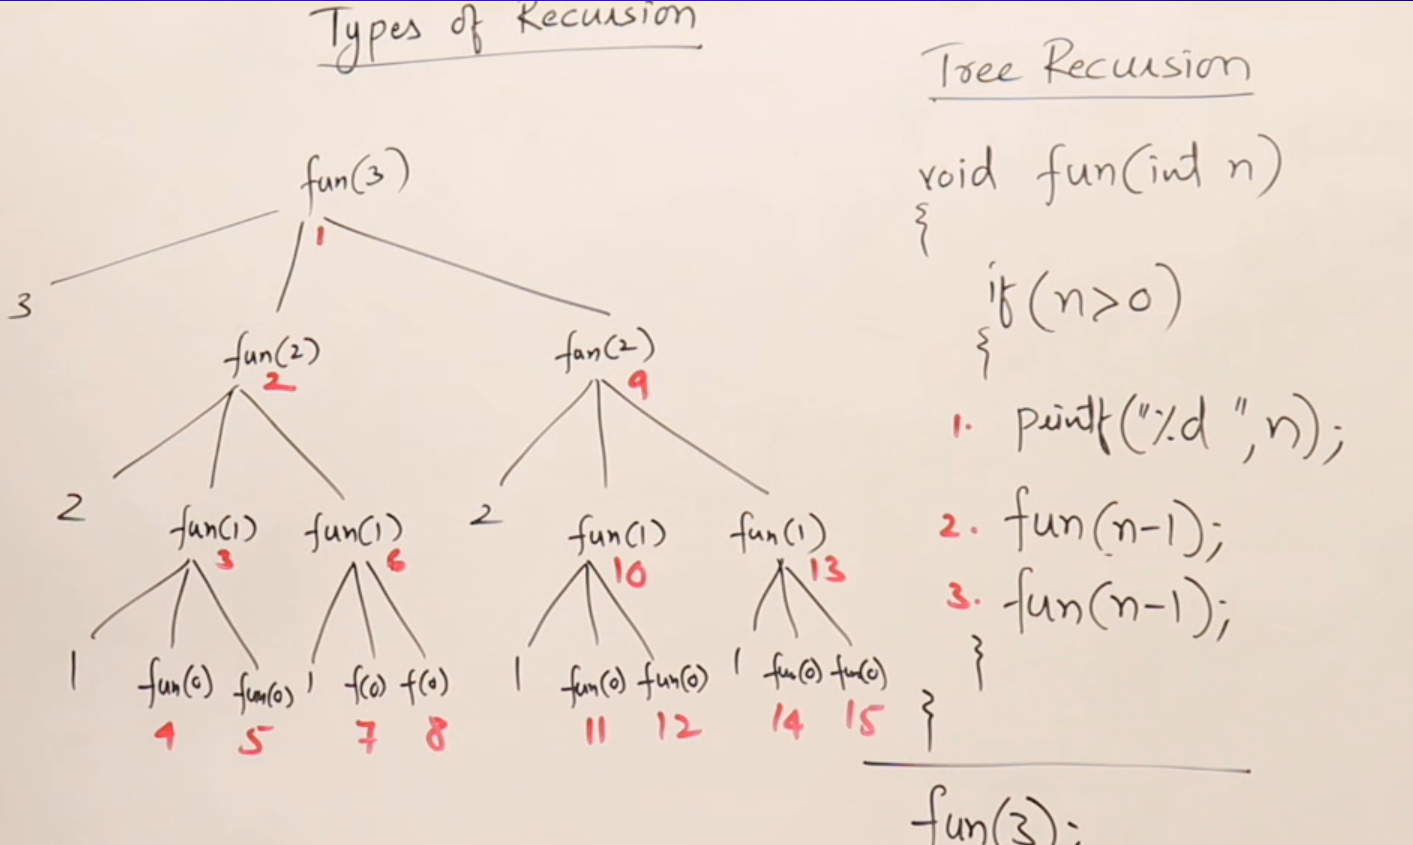 Types of Recursion
fun(3)
1
3
fun(2)
2
fun(2)
9
2
fun(1)
3
fun(1)
6
2
fun(1)
10
fun(1)
13
1
fun(0)
4
fun(0)
5
1
f(0)
7
f(0)
8
1
fun(0)
11
fun(0)
12
1
fun(0)
14
fun(0)
15
Tree Recursion
void fun(int n)
{
if(n>0)
{
1. printf("%d ",n);
2. fun(n-1);
3. fun(n-1);
}
}
fun(3);